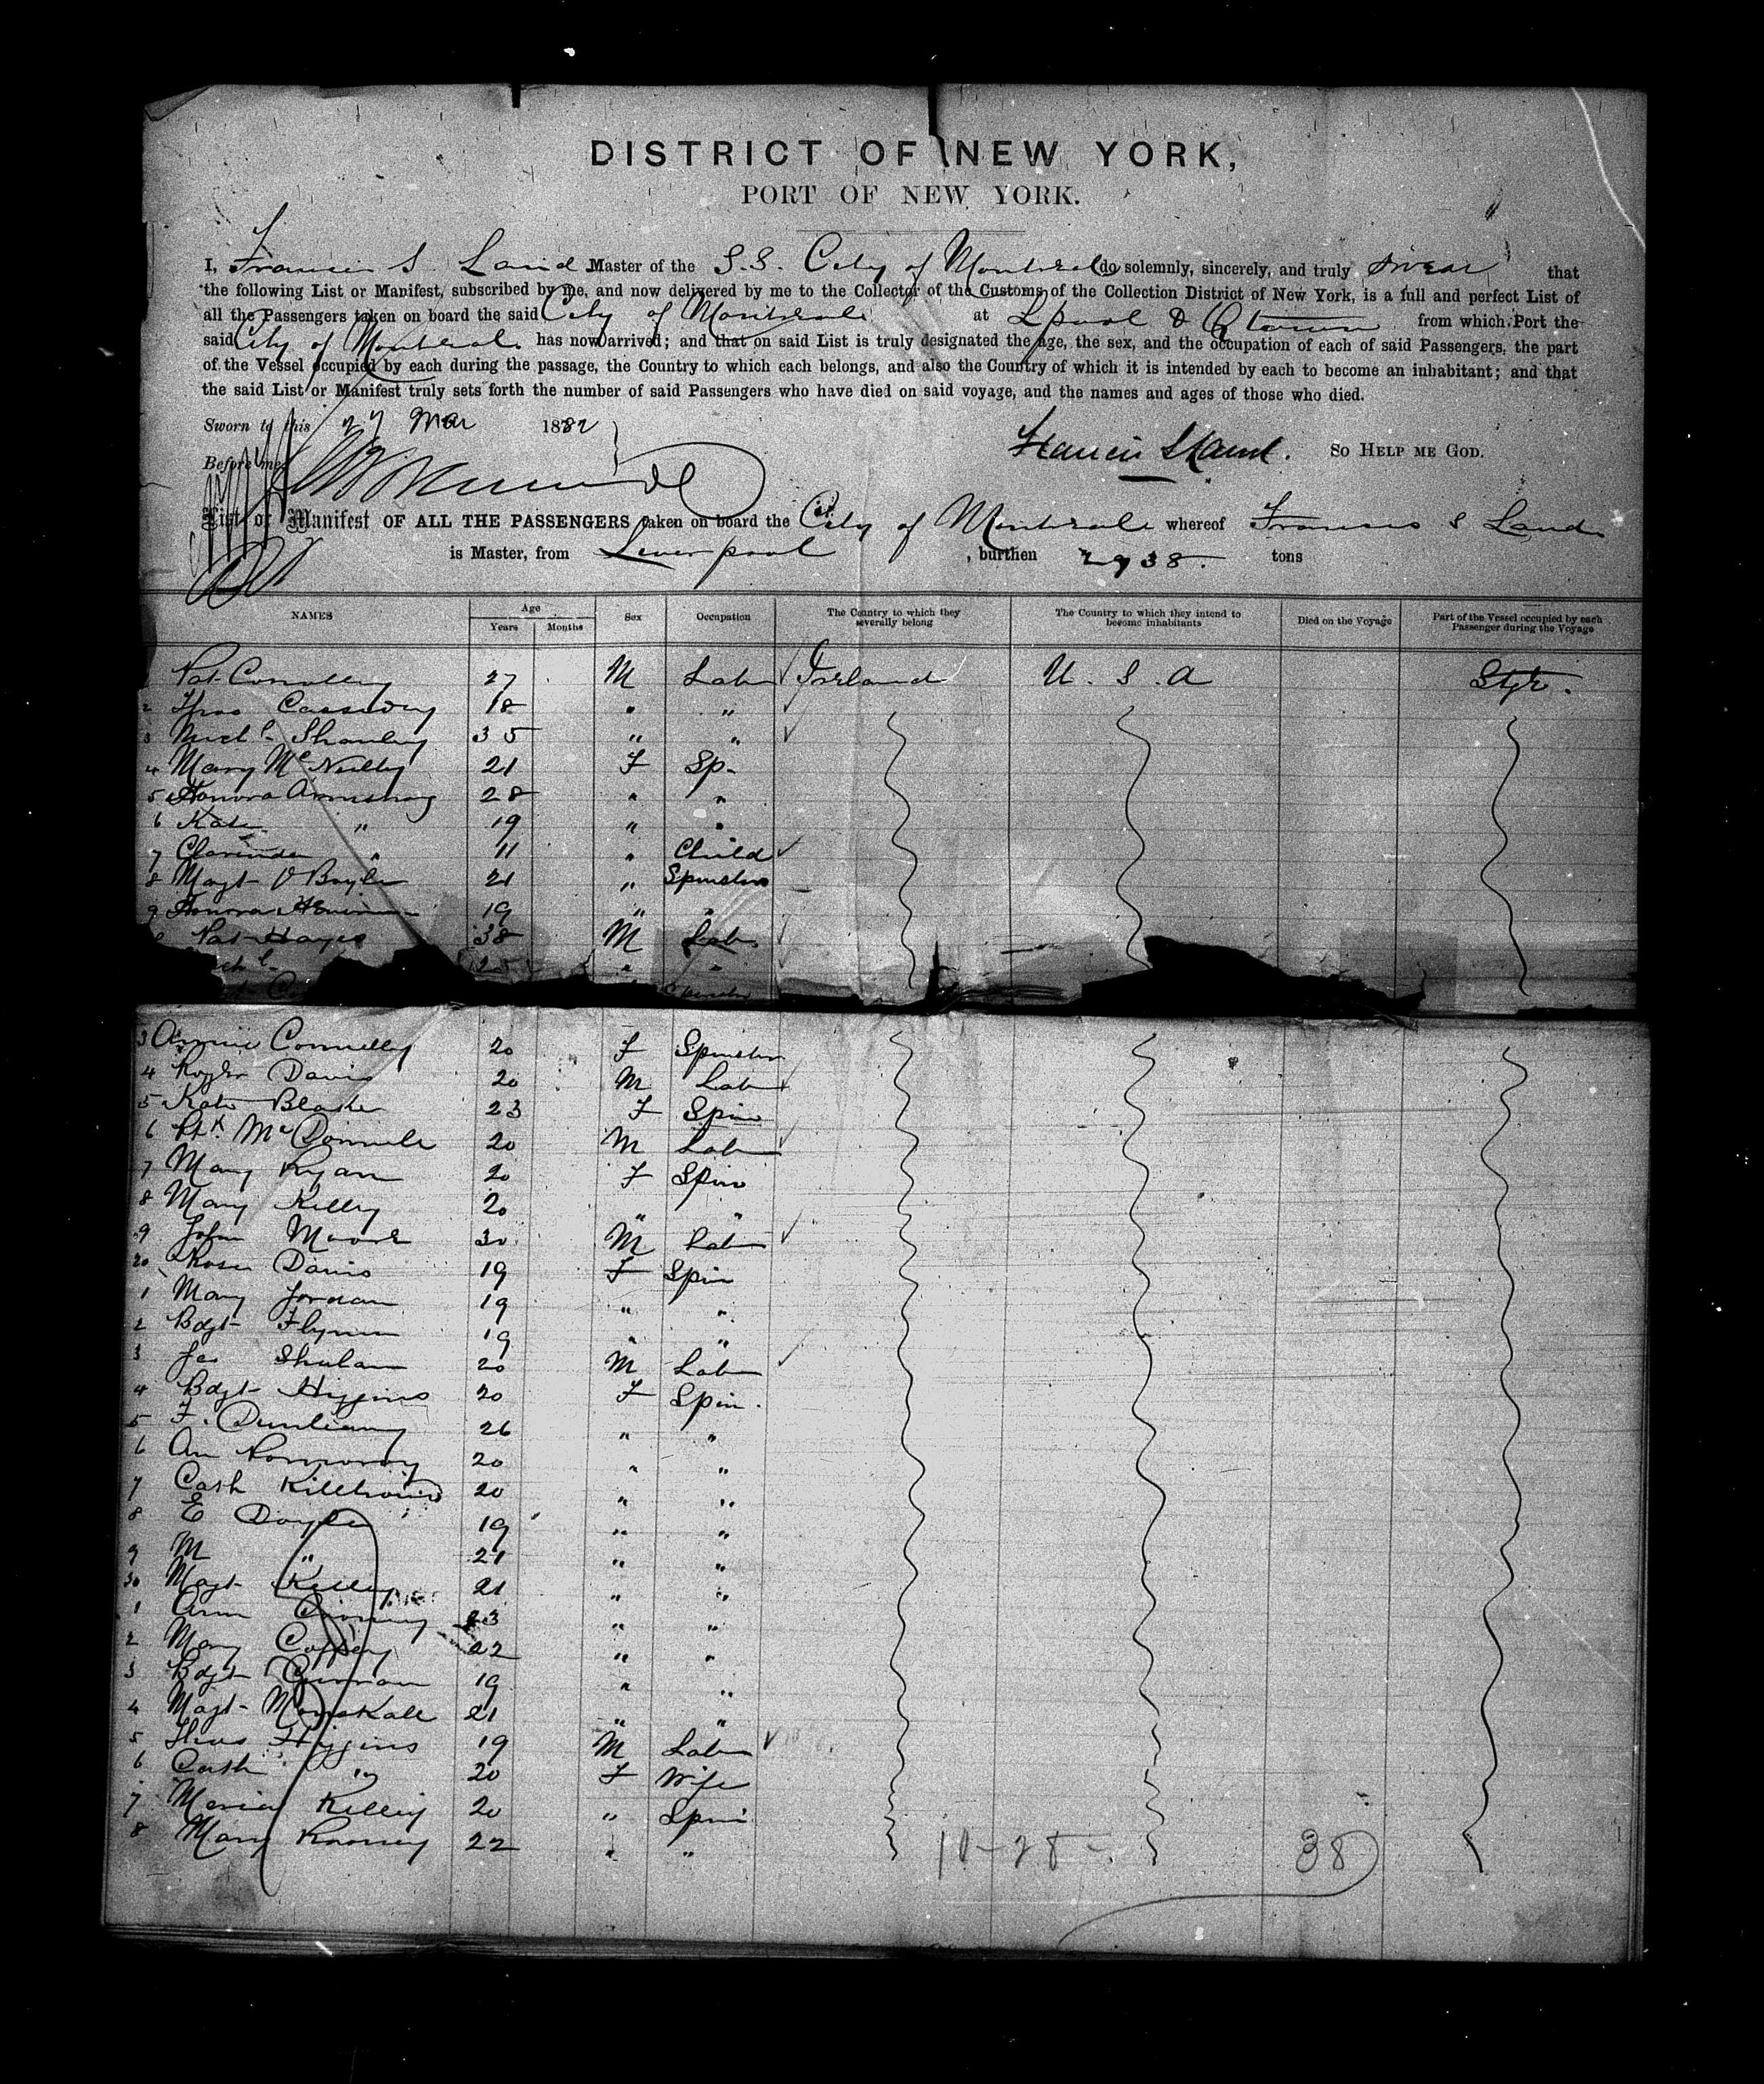 DISTRICT OF NEW YORK,
PORT OF NEW YORK.
I, Francis S. Land Master of the S.S. City of Montreal do solemnly, sincerely, and truly swear that
the following List or Manifest, subscribed by me, and now delivered by me to the Collector of the Customs of the Collection District of New York, is a full and perfect List of
all the Passengers taken on board the said City of Montreal at Lpool & Qtown from which Port the
said City of Montreal has now arrived; and that on said List is truly designated the age, the sex, and the occupation of each of said Passengers, the part
of the Vessel occupied by each during the passage, the Country to which each belongs, and also the Country of which it is intended by each to become an inhabitant; and that
the said List or Manifest truly sets forth the number of said Passengers who have died on said voyage, and the names and ages of those who died.
Sworn to this 27 Mar 1882
Francis S Land. SO HELP ME GOD.
Before me
List or Manifest OF ALL THE PASSENGERS taken on board the City of Montreal whereof Francis S Land
is Master, from Liverpool, burthen 2938. tons
NAMES Age Years Months Sex Occupation The Country to which they severally belong The Country to which they intend to become inhabitants Died on the Voyage Part of the Vessel occupied by each Passenger during the Voyage
Pat Connolly 27 M Lab Ireland U.S.A Stge.
2 Thos Cassidy 18 " "
3 Michl Shanley 35 " "
4 Mary McNulty 21 F Sp-
5 Honora Armstrong 28 " "
6 Kate " 19 " "
7 Clarinda " 11 " Child
8 Magt O'Boyle 21 " Spinster
9 Honora 19 " "
Pat Hayes 38 M Lab
25 " "
Spinster
3 Annie Connelly 20 F Spinster
4 Davis 20 M Lab
5 Kate Blake 23 F Spin
6 Ptk McDonnell 20 M Lab
7 Mary Ryan 20 F Spin
8 Mary Kelly 20 " "
9 John Moore 30 M Lab
20 Rose Davis 19 F Spin
1 Mary Jordan 19 " "
2 Bdgt Flynn 19 " "
3 Jas 20 M Lab
4 Bdgt Higgins 20 F Spin.
5 F. Dunleavy 26 " "
6 An 20 " "
7 Cath 20 " "
8 E Doyle 19 " "
9 M " 21 " "
30 Magt Kelly 21 " "
1 Ann 23 " "
2 Mary Caffrey 22 " "
3 Bdgt Curran 19 " "
4 Magt 21 " "
5 Thos Higgins 19 M Lab
6 Cath " 20 F Wife
7 Maria Kelly 20 " Spin
8 Mary Rooney 22 " "
10-28- 38